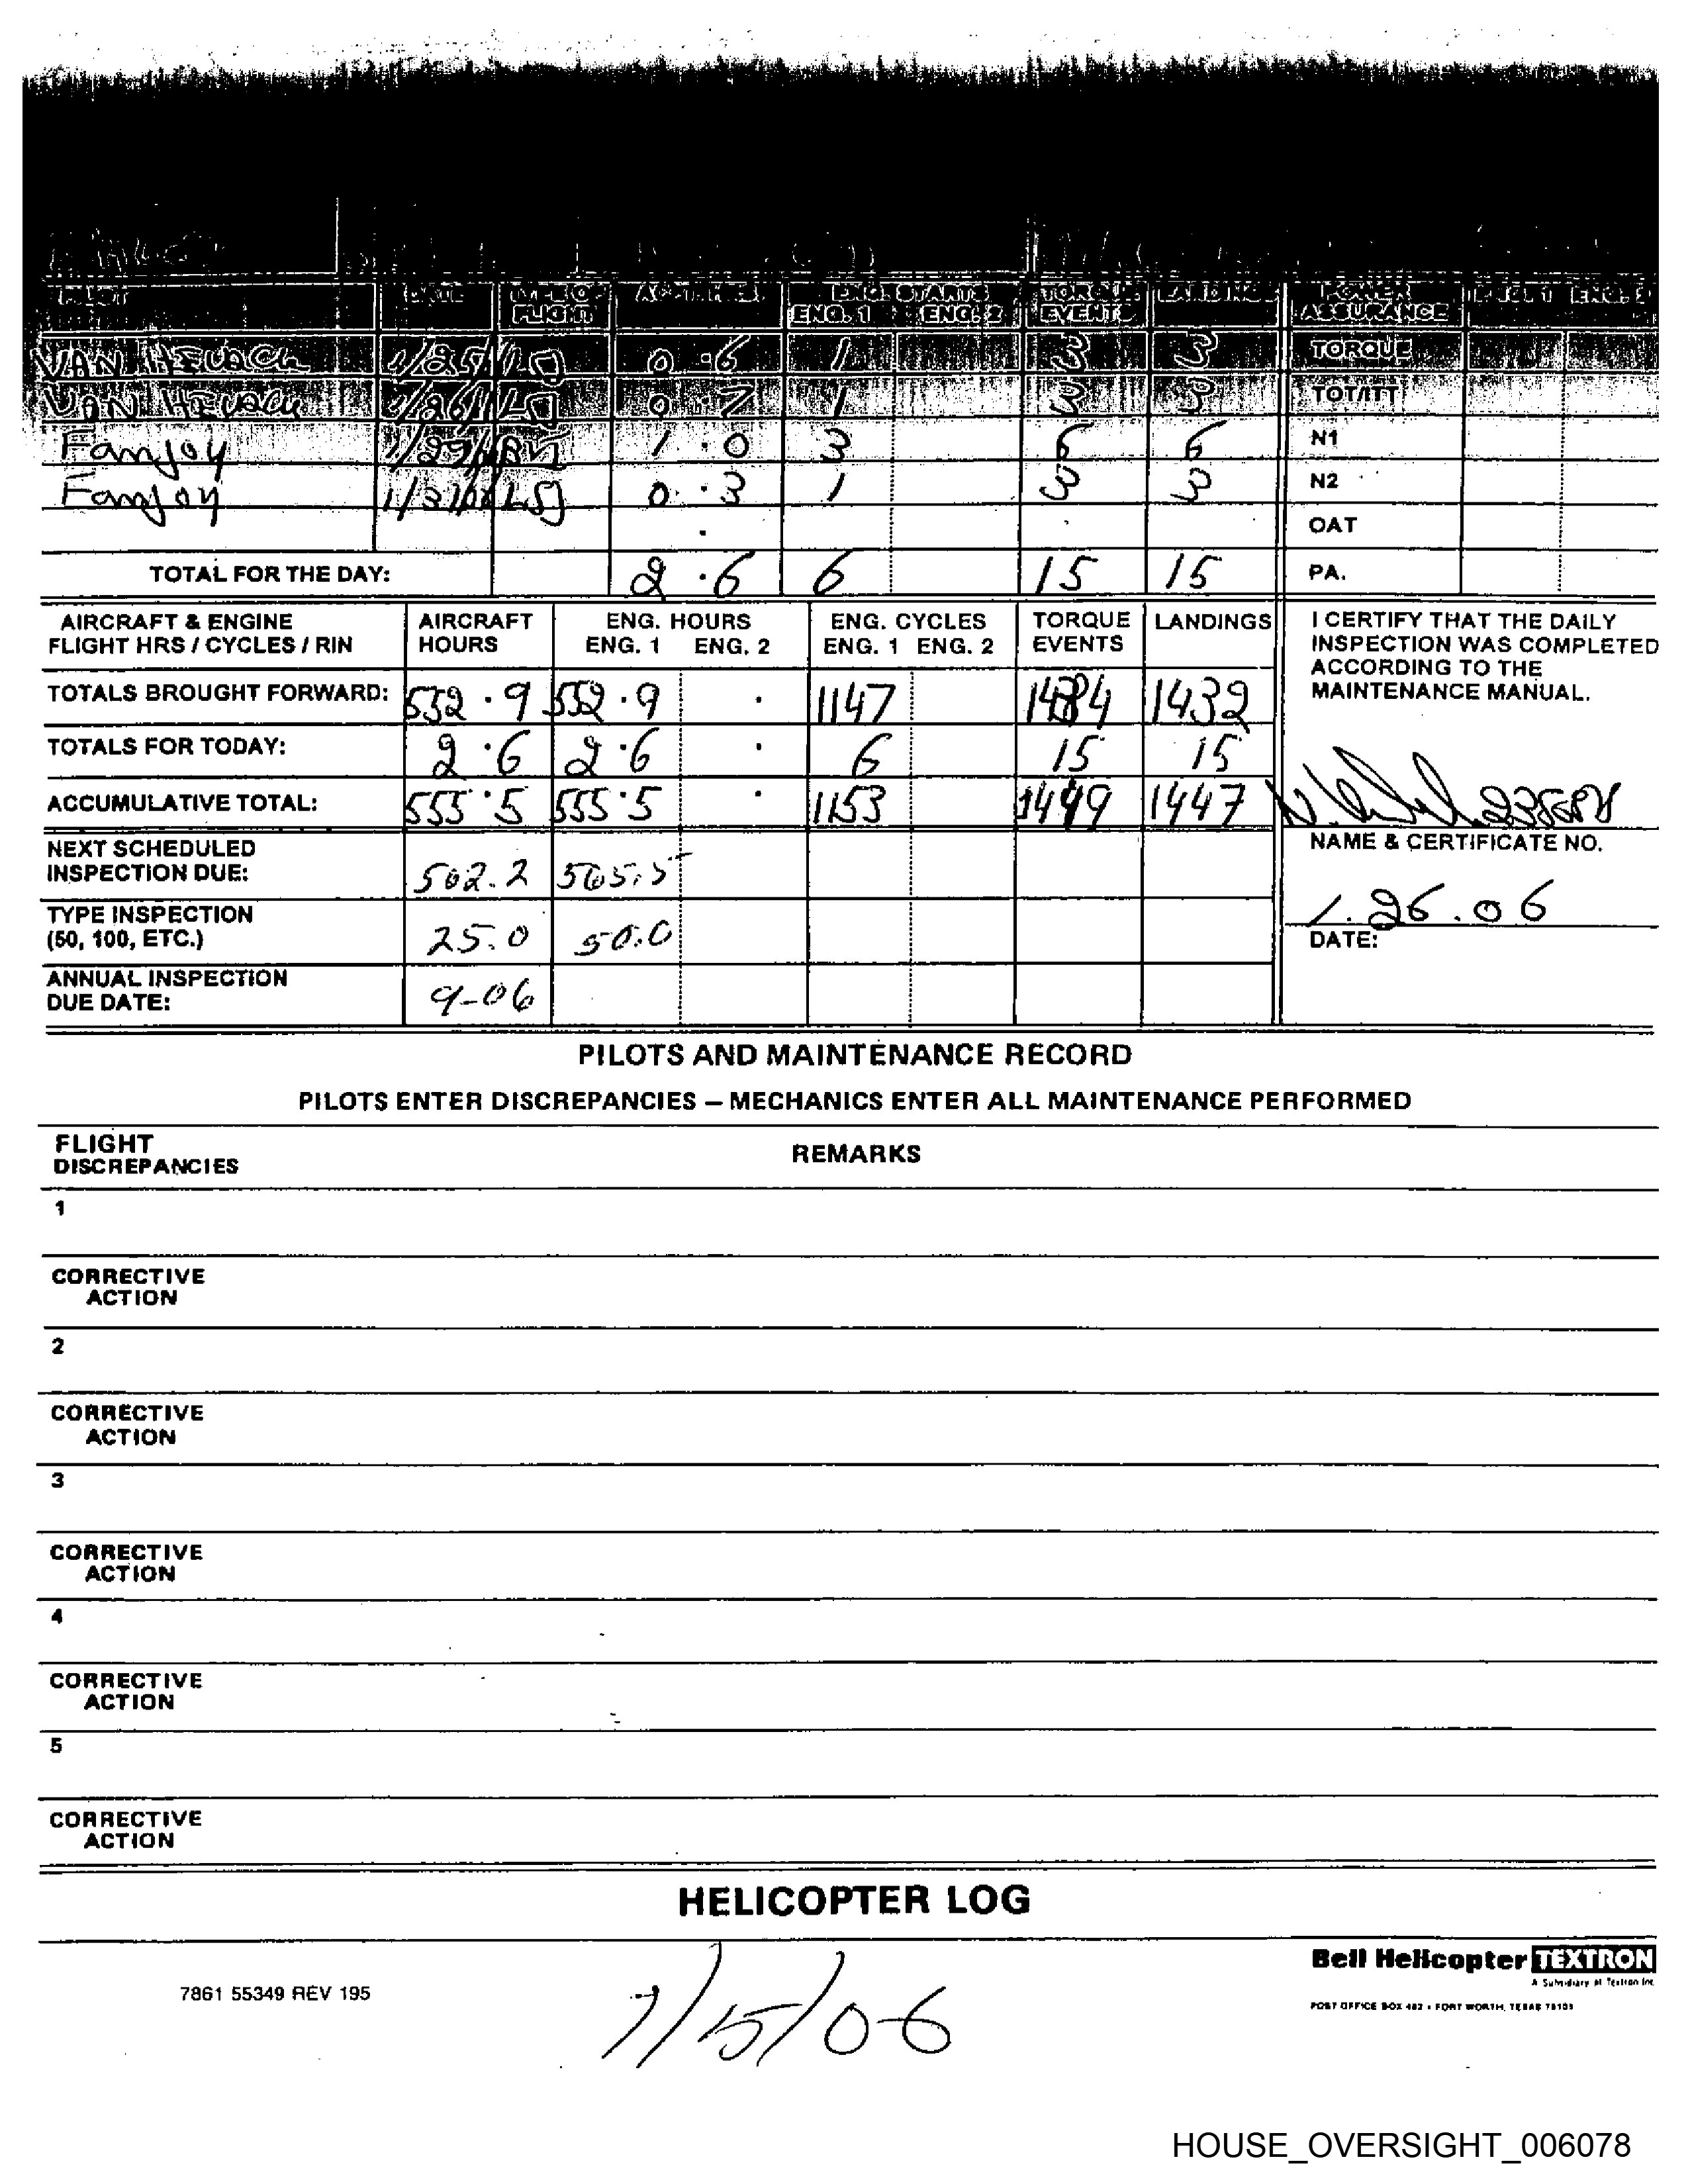 PILOT DATE TYPE OF FLIGHT ENG. STARTS ENG. 1 ENG. 2 TORQUE EVENTS LANDINGS POWER ASSURANCE ENG. 1 ENG. 2
0.6 1 3 3 TORQUE
0.7 1 3 3 TOT/ITT
Fanjoy 1.0 3 6 6 N1
Fanjoy 0.3 1 3 3 N2
. OAT
TOTAL FOR THE DAY: 2.6 6 15 15 PA.
AIRCRAFT & ENGINE AIRCRAFT ENG. HOURS ENG. CYCLES TORQUE LANDINGS I CERTIFY THAT THE DAILY
FLIGHT HRS / CYCLES / RIN HOURS ENG. 1 ENG. 2 ENG. 1 ENG. 2 EVENTS INSPECTION WAS COMPLETED
ACCORDING TO THE
TOTALS BROUGHT FORWARD: 552.9 . 1147 1432 MAINTENANCE MANUAL.
TOTALS FOR TODAY: 2.6 2.6 . 6 15 15
ACCUMULATIVE TOTAL: 555.5 555.5 . 1153 1447
NEXT SCHEDULED NAME & CERTIFICATE NO.
INSPECTION DUE: 565.5
TYPE INSPECTION 1.26.06
(50, 100, ETC.) 25.0 50.0 DATE:
ANNUAL INSPECTION
DUE DATE: 9-06
PILOTS AND MAINTENANCE RECORD
PILOTS ENTER DISCREPANCIES – MECHANICS ENTER ALL MAINTENANCE PERFORMED
FLIGHT
DISCREPANCIES REMARKS
1
CORRECTIVE
ACTION
2
CORRECTIVE
ACTION
3
CORRECTIVE
ACTION
4
CORRECTIVE
ACTION
5
CORRECTIVE
ACTION
HELICOPTER LOG
Bell Helicopter TEXTRON
A Subsidiary of Textron Inc.
7861 55349 REV 195
POST OFFICE BOX 482 • FORT WORTH, TEXAS 76101
/5/06
HOUSE_OVERSIGHT_006078